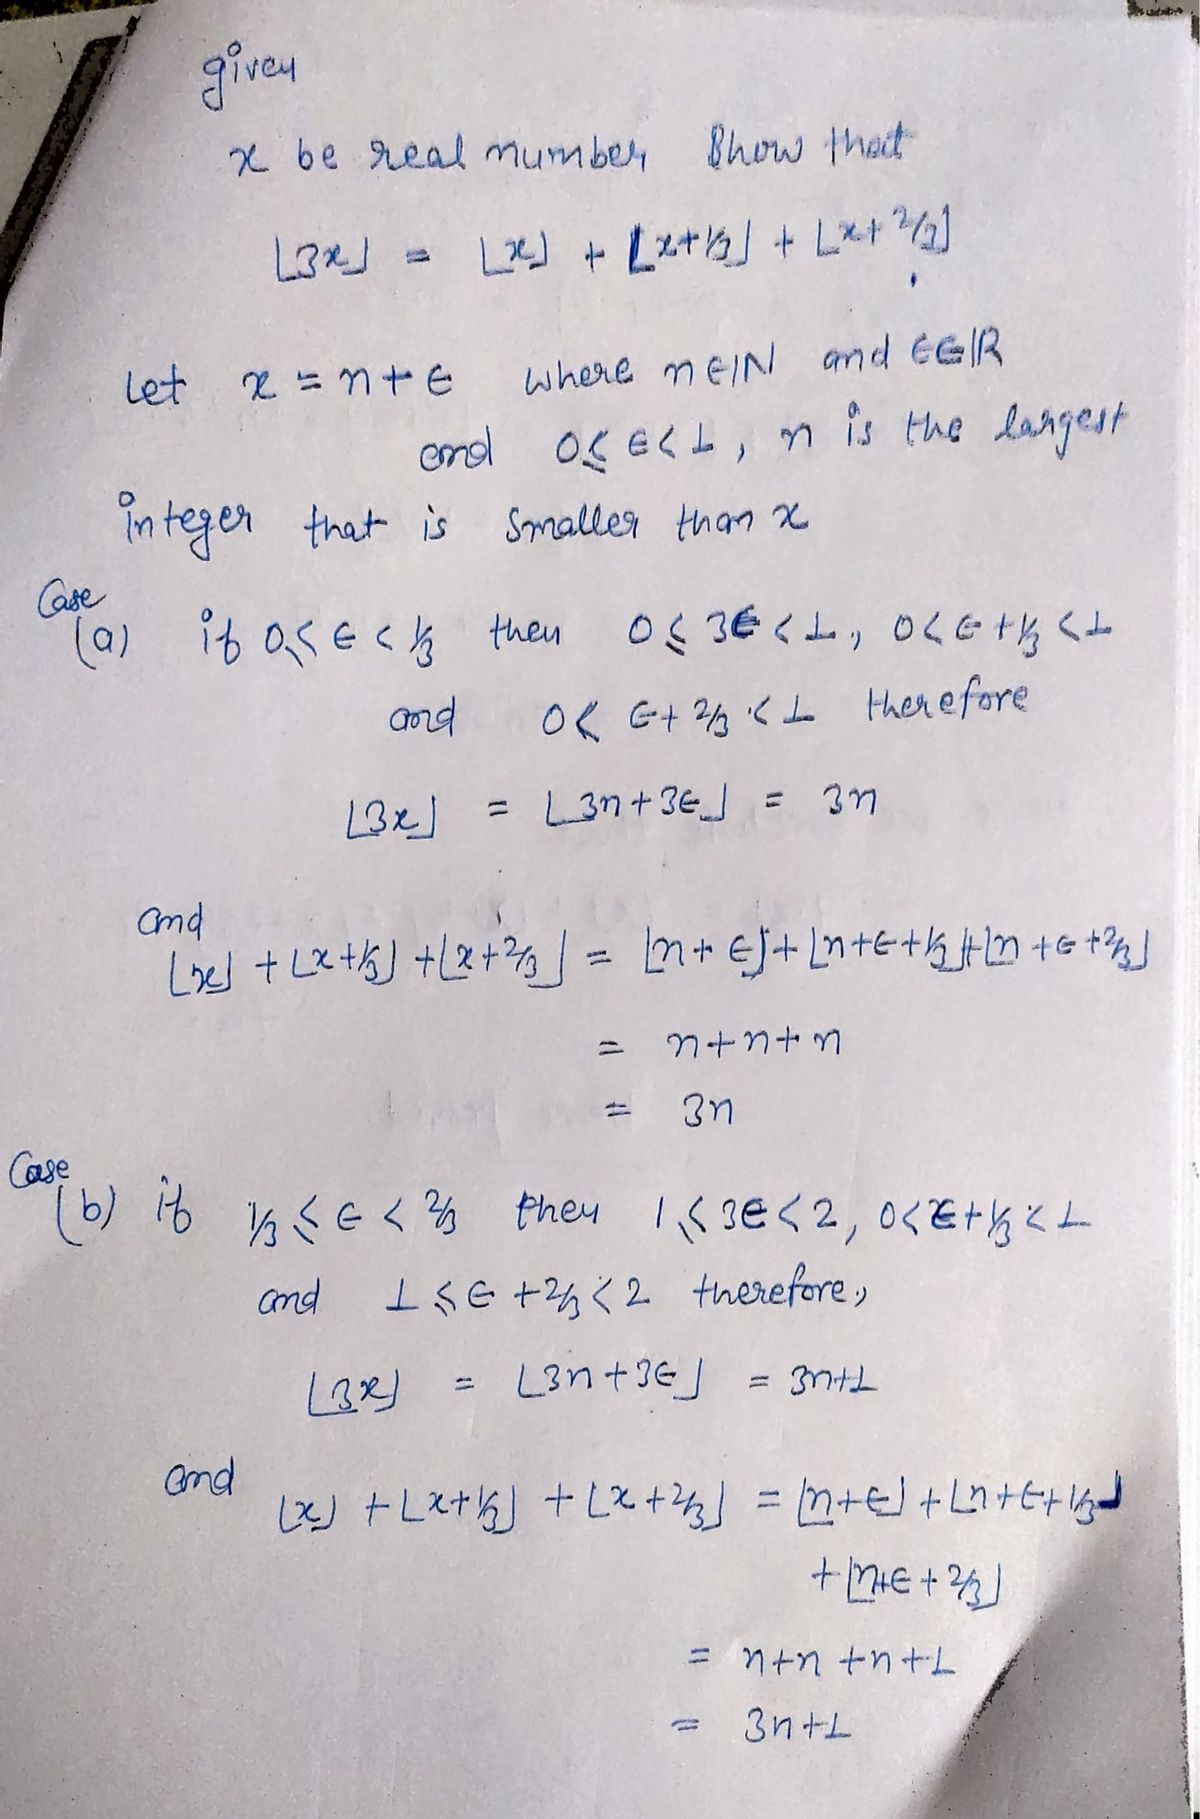 given
x be real number Show that
⌊3x⌋ = ⌊x⌋ + ⌊x+1/3⌋ + ⌊x+2/3⌋
Let x = n+ϵ where n∈ℕ and ϵ∈ℝ
and 0≤ϵ<1, n is the largest
integer that is smaller than x
Case
(a) if 0≤ϵ<1/3 then 0≤3ϵ<1, 0<ϵ+1/3<1
and 0<ϵ+2/3<1 therefore
⌊3x⌋ = ⌊3n+3ϵ⌋ = 3n
and
⌊x⌋ + ⌊x+1/3⌋ + ⌊x+2/3⌋ = ⌊n+ϵ⌋ + ⌊n+ϵ+1/3⌋ + ⌊n+ϵ+2/3⌋
= n+n+n
= 3n
Case
(b) if 1/3≤ϵ<2/3 then 1≤3ϵ<2, 0<ϵ+1/3<1
and 1≤ϵ+2/3<2 therefore,
⌊3x⌋ = ⌊3n+3ϵ⌋ = 3n+1
and ⌊x⌋ + ⌊x+1/3⌋ + ⌊x+2/3⌋ = ⌊n+ϵ⌋ + ⌊n+ϵ+1/3⌋
+ ⌊n+ϵ+2/3⌋
= n+n+n+1
= 3n+1